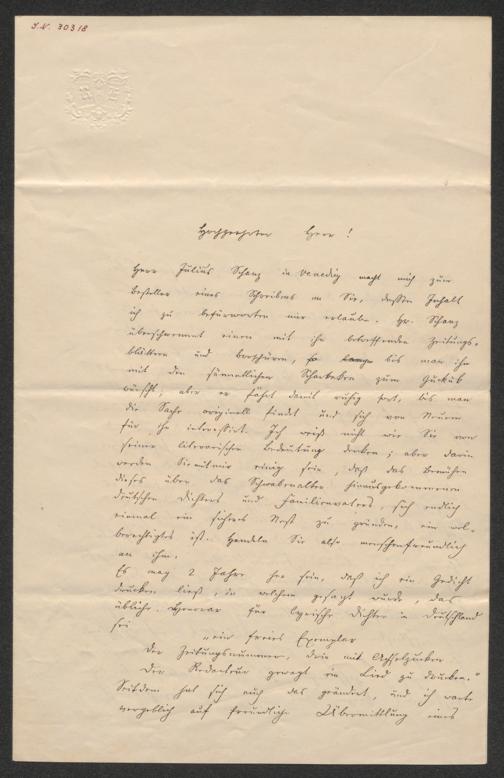 I.N. 30318
Hochgeehrter Herr!
Herr Julius Schanz in Venedig macht mich zum
Besteller eines Schreibens an Sie, dessen Inhalt
ich zu befürworten mir erlaube. Hr. Schanz
überschwemmt einen mit ihn betreffenden Zeitungs-
blättern und Broschüren, so lange bis man ihn
mit den sämmtlichen Scharteken zum Gukuk
wünscht; aber er fährt damit ruhig fort, bis man
die Sache originell findet und sich von Neuem
für ihn interessirt. Ich weiß nicht wie Sie von
seiner literarischen Bedeutung denken; aber darin
werden Sie mit mir einig sein, daß das Bemühen
dieses über das Schwabenalter hinausgekommenen
deutschen Dichters und Familienvaters, sich endlich
einmal ein sicheres Nest zu gründen, ein wol-
berechtigtes ist. Handeln Sie also menschenfreundlich
an ihm.
Es mag 2 Jahre her sein, daß ich ein Gedicht
drucken ließ, in welchem gesagt wurde, das
übliche Honorar für lyrische Dichter in Deutschland
sei
"ein freies Exemplar
Der Zeitungsnummer, drin mit Achselzucken
Der Redacteur gewagt ein Lied zu drucken."
Seitdem hat sich auch das geändert, und ich warte
vergeblich auf freundliche Übermittlung eines